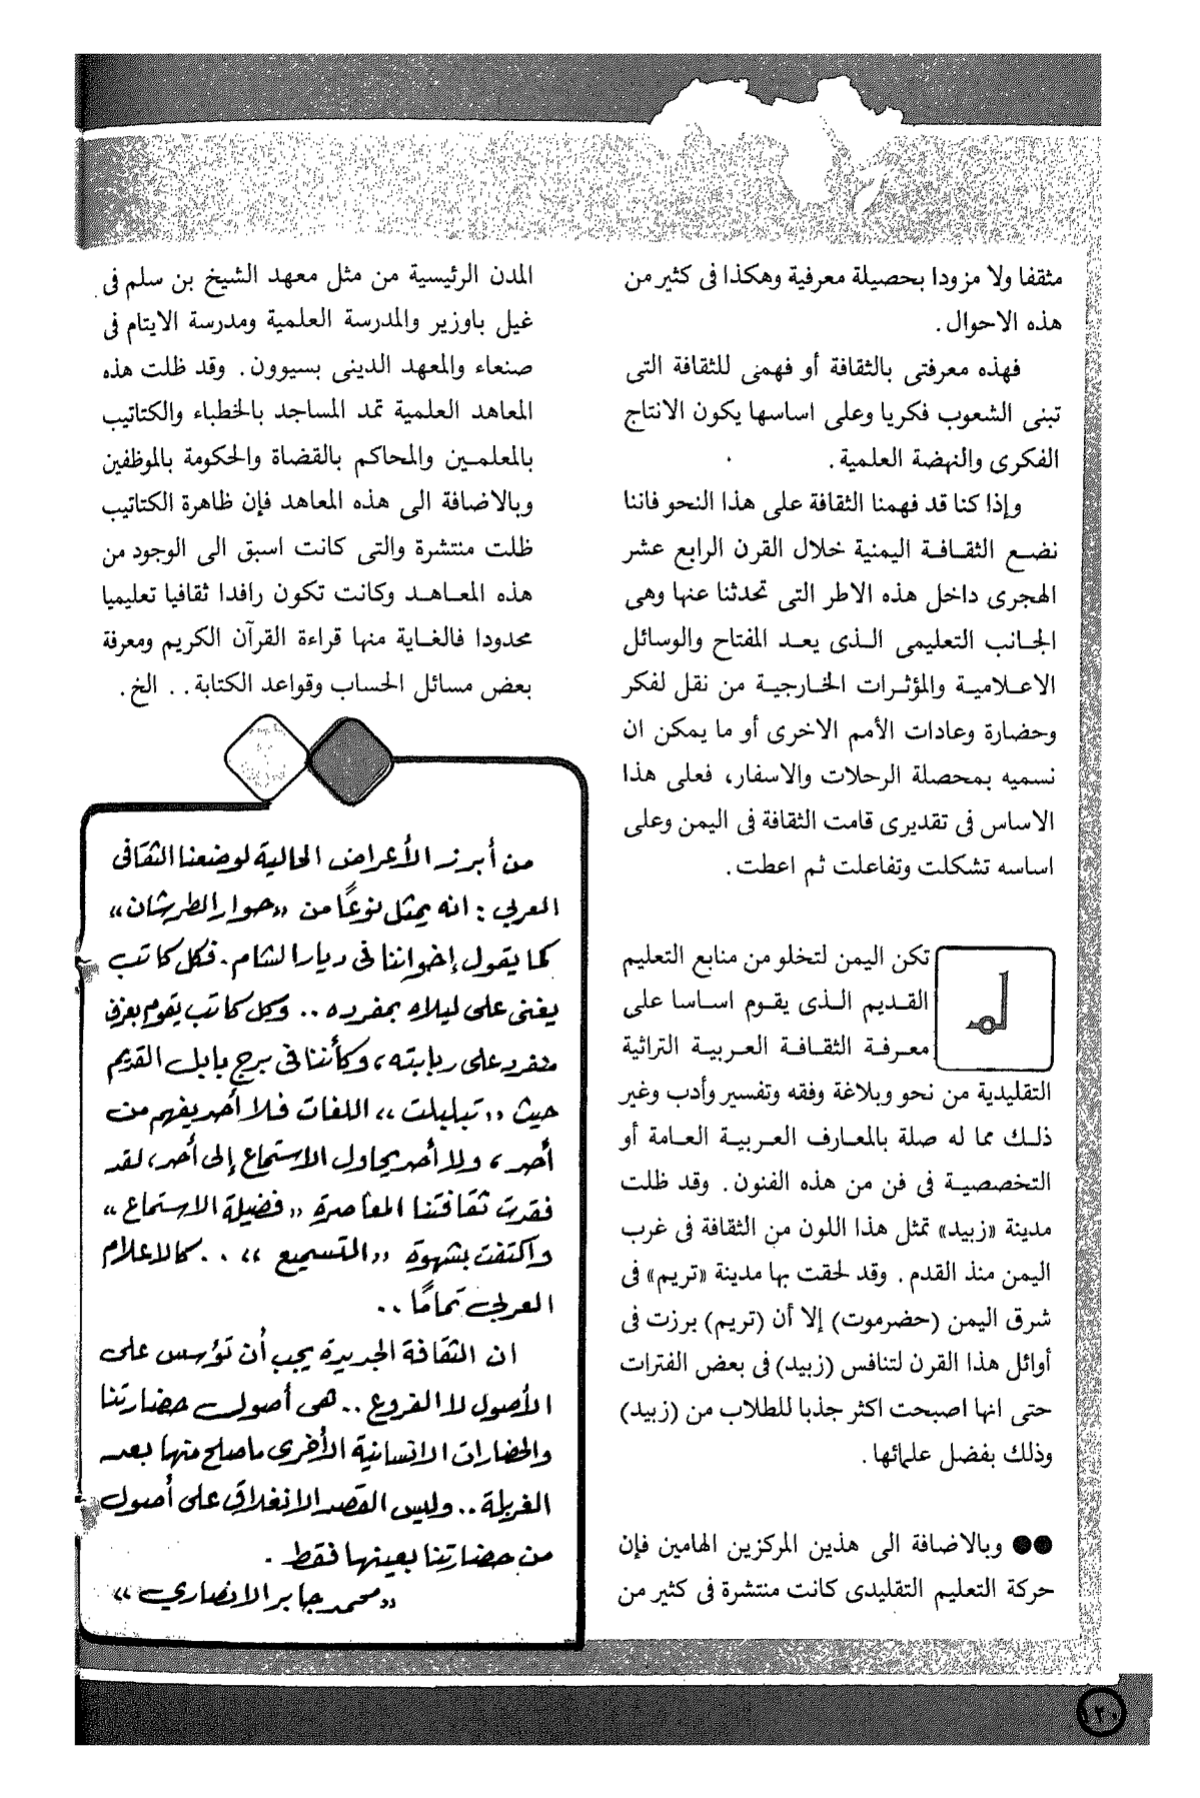 مثقفا ولا مزودا بحصيلة معرفية وهكذا فى كثير من
هذه الاحوال .
فهذه معرفتى بالثقافة أو فهمى للثقافة التى
تبنى الشعوب فكريا وعلى اساسها يكون الانتاج
الفكرى والنهضة العلمية .
وإذا كنا قد فهمنا الثقافة على هذا النحو فاننا
نضع الثقافة اليمنية خلال القرن الرابع عشر
الهجرى داخل هذه الاطر التى تحدثنا عنها وهى
الجانب التعليمى الذى يعد المفتاح والوسائل
الاعلامية والمؤثرات الخارجية من نقل لفكر
وحضارة وعادات الأمم الاخرى أو ما يمكن ان
نسميه بمحصلة الرحلات والاسفار، فعلى هذا
الاساس فى تقديرى قامت الثقافة فى اليمن وعلى
اساسه تشكلت وتفاعلت ثم اعطت .
لم تكن اليمن لتخلو من منابع التعليم
القديم الذى يقوم اساسا على
معرفة الثقافة العربية التراثية
التقليدية من نحو وبلاغة وفقه وتفسير وأدب وغير
ذلك مما له صلة بالمعارف العربية العامة أو
التخصصية فى فن من هذه الفنون . وقد ظلت
مدينة «زبيد» تمثل هذا اللون من الثقافة فى غرب
اليمن منذ القدم . وقد لحقت بها مدينة «تريم» فى
شرق اليمن (حضرموت) إلا أن (تريم) برزت فى
أوائل هذا القرن لتنافس (زبيد) فى بعض الفترات
حتى انها اصبحت اكثر جذبا للطلاب من (زبيد)
وذلك بفضل علمائها .
●● وبالاضافة الى هذين المركزين الهامين فإن
حركة التعليم التقليدى كانت منتشرة فى كثير من
المدن الرئيسية من مثل معهد الشيخ بن سلم فى
غيل باوزير والمدرسة العلمية ومدرسة الايتام فى
صنعاء والمعهد الدينى بسيوون . وقد ظلت هذه
المعاهد العلمية تمد المساجد بالخطباء والكتاتيب
بالمعلمين والمحاكم بالقضاة والحكومة بالموظفين
وبالاضافة الى هذه المعاهد فإن ظاهرة الكتاتيب
ظلت منتشرة والتى كانت اسبق الى الوجود من
هذه المعاهد وكانت تكون رافدا ثقافيا تعليميا
محدودا فالغاية منها قراءة القرآن الكريم ومعرفة
بعض مسائل الحساب وقواعد الكتابة . . الخ .
من أبرز الأعراض الحالية لوضعنا الثقافى
العربي : انه يمثل نوعًا من «حوار الطرشان»
كما يقول إخواننا فى ديار الشام . فكل كاتب
يغنى على ليلاه بمفرده .. وكل كاتب يقوم بعزف
منفرد على ربابته ، وكأننا فى برج بابل القديم
حيث «تبلبلت» اللغات فلا أحد يفهم من
أحد ، ولا أحد يحاول الاستماع إلى أحد ، لقد
فقدت ثقافتنا المعاصرة «فضيلة الاستماع»
واكتفت بشهوة «التسميع» .. كالاعلام
العربي تمامًا ..
ان الثقافة الجديدة يجب أن تؤسس على
الأصول لا الفروع .. هى أصول حضارتنا
والحضارات الانسانية الأخرى ما صلح منها بعد
الغربلة .. وليس القصد الانغلاق على أصول
من حضارتنا بعينها فقط .
«محمد جابر الانصاري»
١٢٠